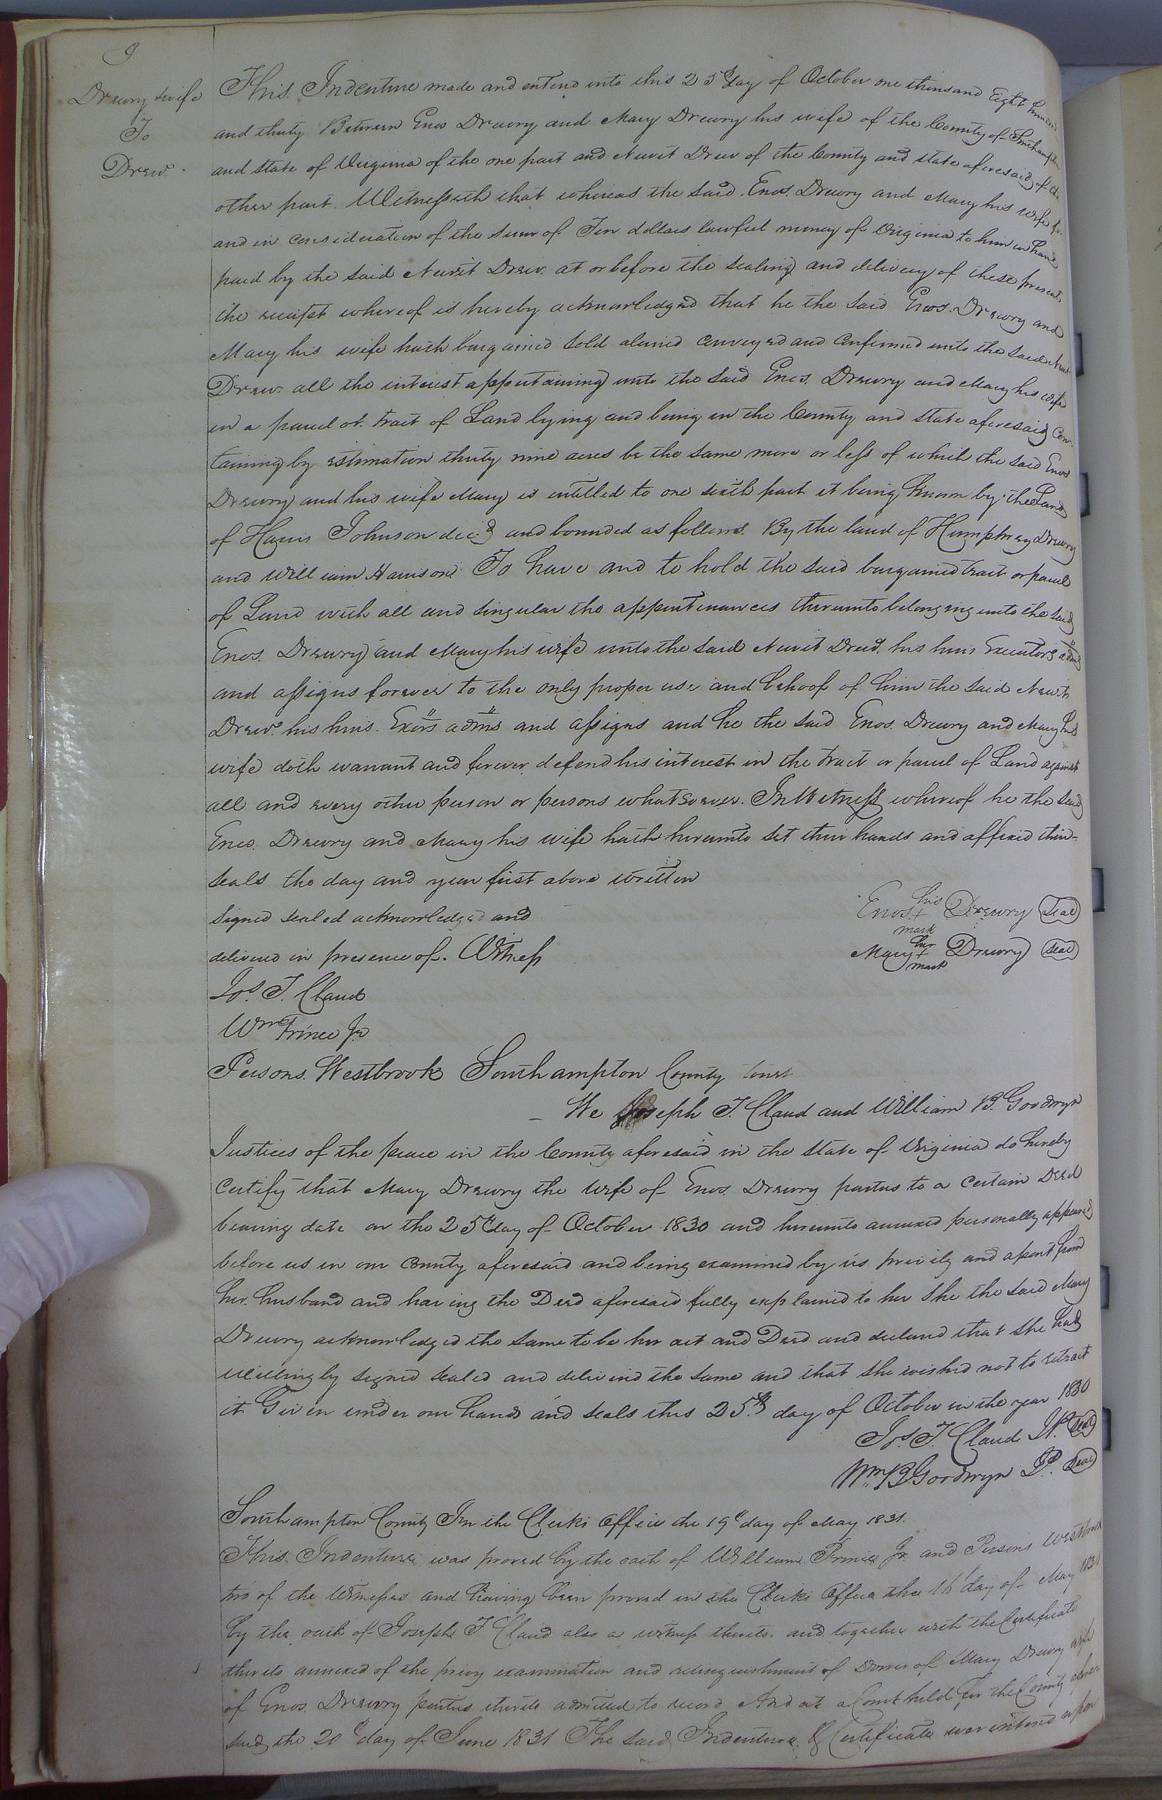 9
Drewry & wife
To
Drew
This Indenture made and entered into this 25th day of October one thousand Eight hundred
and thirty Between Enos Drewry and Mary Drewry his wife of the County of Southampton
and state of Virginia of the one part and Newit Drew of the County and state aforesaid, of the
other part. Witnesseth that whereas the said Enos. Drewry and Mary his wife for
and in consideration of the sum of Ten dollars lawful money of Virginia to him in hand
paid by the said Newit Drew. at or before the sealing and delivery of these presents,
the receipt whereof is hereby acknowledged that he the said Enos. Drewry and
Mary his wife hath bargained sold aliened conveyed and confirmed unto the said Newit
Drew. all the interest appertaining unto the said Enos. Drewry and Mary his wife
in a parcel or tract of Land lying and being in the County and state aforesaid Con-
taining by estimation thirty nine acres be the same more or less of which the said Enos
Drewry and his wife Mary is intitled to one sixth part it being known by the Land
of Harris Johnson decd and bounded as follows. By the land of Humphrey Drewry
and William Harrison To have and to hold the said bargained tract or parcel
of Land with all and singular the appertenances thereunto belonging unto the said
Enos. Drewry and Mary his wife unto the said Newit Drew. his heirs Executors adms
and assigns forever to the only proper use and behoof of him the said Newit
Drew. his heirs. Exors adms and assigns and he the said Enos. Drewry and Mary his
wife doth warrant and forever defend his interest in the tract or parcel of Land against
all and every other person or persons whatsoever. In Witness whereof he the said
Enos. Drewry and Mary his wife hath hereunto set their hands and affixed their
seals the day and year first above written
Signed sealed acknowledged and
Enos his + mark Drewry Seal
delivered in presence of. Witness
Mary her + mark Drewry Seal
Jos. T. Claud
Wm Prince Jr
Persons. Westbrook Southampton County Court
We Joseph T. Claud and William B. Goodwyn
Justices of the peace in the County aforesaid in the State of Virginia do hereby
Certify that Mary Drewry the wife of Enos. Drewry parties to a certain Deed
bearing date on the 25th day of October 1830 and hereunto annexed personally appeared
before us in our County aforesaid and being examined by us privily and apart from
her. husband and having the Deed aforesaid fully explained to her She the said Mary
Drewry acknowledged the same to be her act and Deed and declared that she had
willingly signed sealed and delivered the same and that she wished not to retract
it Given under our hands and seals this 25th day of October in the year 1830
Jos. T. Claud JP. Seal
Wm B Goodwyn JP. Seal
Southampton County In the Clerks Office the 19th day of May 1831.
This. Indenture was proved by the oath of William Prince Jr and Persons Westbrook
two of the Witnesses and having been proved in the Clerks Office the 16th day of May 1831
by the oath of Joseph T Claud also a witness thereto. and together with the Certificate
thereto annexed of the privy examination and relinquishment of Dower of Mary Drewry wife
of Enos. Drewry parties thereto admitted to record And at a Court held for the County afore
said, the 20th day of June 1831 The said Indenture & Certificate was entered upon